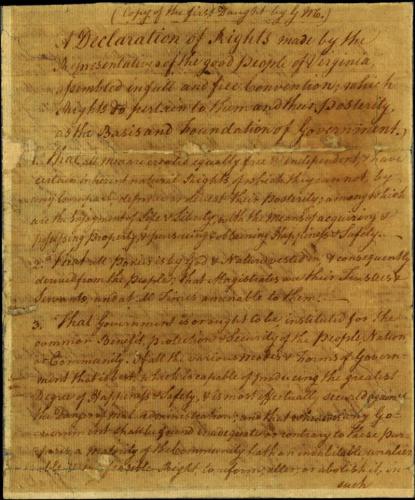 (Copy of the first Daught by G M.)
A Declaration of Rights made by the
Representatives of the good People of Virginia
assembled in full and free Convention; which
Rights do pertain to them and their Posterity,
as the Basis and Foundation of Government.
1. That all men are created equally free & independent, & have
certain inherent natural Rights, of which they cannot, by
any Compact, deprive or divest their Posterity; among which
are the Enjoyment of Life & Liberty, with the Means of acquiring &
possessing Property, & pursueing & obtaining Happiness & Safety.
2. That all Power is by God & Nature vested in, & consequently
derived from the People; that Magistrates are their Trustees &
Servants, and at all Times amenable to them.
3. That Government is or ought to be instituted for the
common Benefit, protection & Security of the People, Nation
or Community. Of all the various modes & Forms of Govern-
ment that is best, which is capable of producing the greatest
Degree of Happiness & Safety, & is most effectually secured against
the Danger of mal administration; and that whenever any Go-
vernment shall be found inadequate or contrary to these pur-
poses, a majority of the Community hath an indubitable, unalien-
able & indefeasible Right to reform, alter or abolish it, in
such